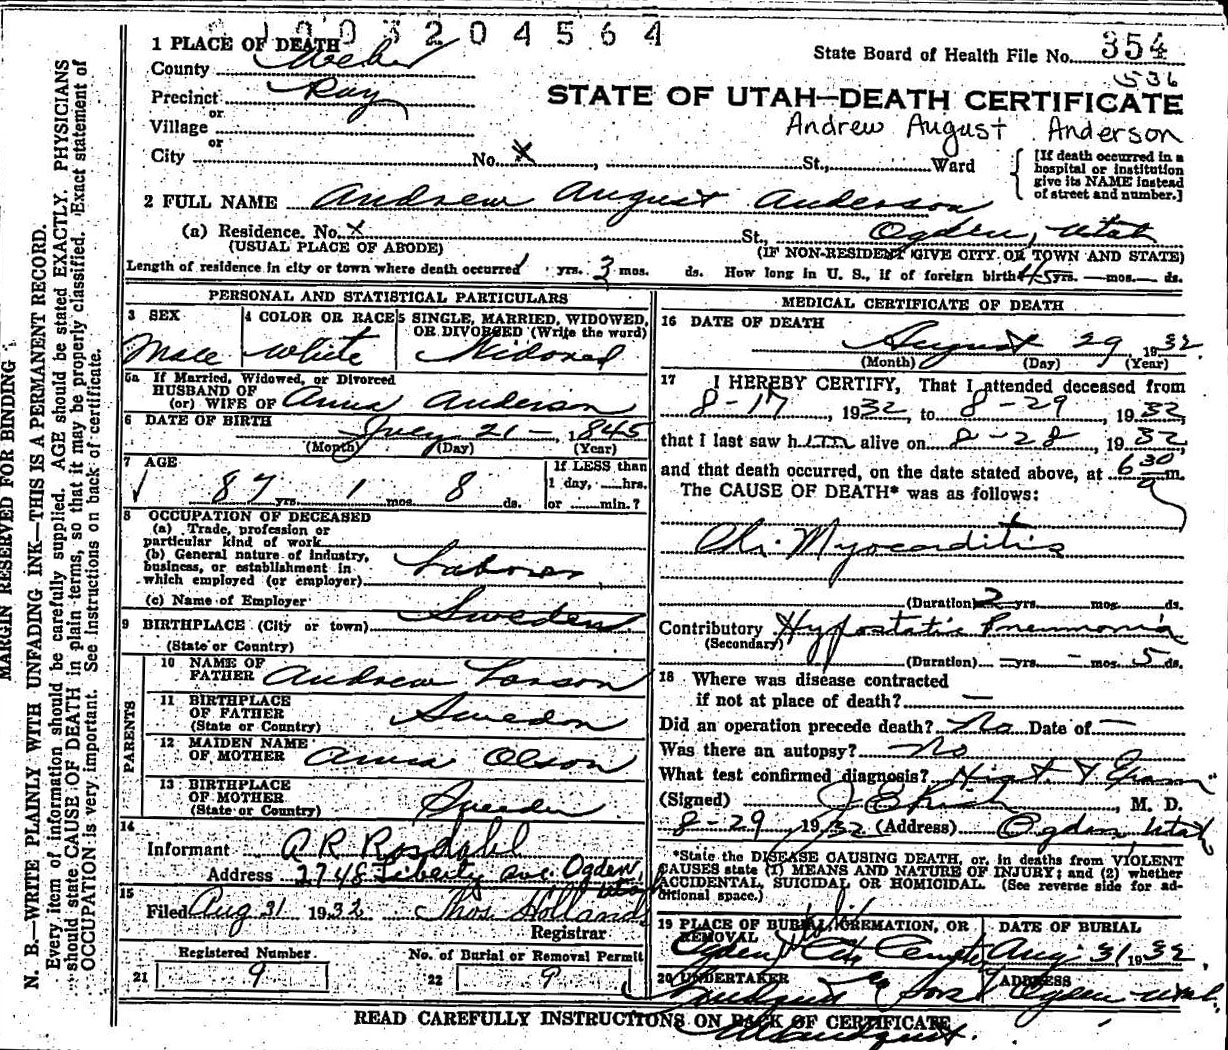 21003204564
1 PLACE OF DEATH
County Weber
State Board of Health File No. 354
536
Precinct Roy
or
STATE OF UTAH—DEATH CERTIFICATE
Village
or
Andrew August Anderson
City No. X , St., Ward
[If death occurred in a hospital or institution give its NAME instead of street and number.]
2 FULL NAME Andrew August Anderson
(a) Residence. No. X St., Ogden, Utah
(USUAL PLACE OF ABODE) (IF NON-RESIDENT GIVE CITY OR TOWN AND STATE)
Length of residence in city or town where death occurred yrs. 3 mos. ds. How long in U. S., if of foreign birth 45 yrs. — mos. — ds.
PERSONAL AND STATISTICAL PARTICULARS
3 SEX 4 COLOR OR RACE 5 SINGLE, MARRIED, WIDOWED, OR DIVORCED (Write the word)
Male White Widowed
5a If Married, Widowed, or Divorced
HUSBAND OF
(or) WIFE OF Anna Anderson
6 DATE OF BIRTH July 21 — , 1845
(Month) (Day) (Year)
7 AGE
87 yrs. 1 mos. 8 ds.
If LESS than
1 day, hrs.
or min.?
8 OCCUPATION OF DECEASED
(a) Trade, profession or
particular kind of work
(b) General nature of industry,
business, or establishment in
which employed (or employer) Laborer
(c) Name of Employer
9 BIRTHPLACE (City or town) Sweden
(State or Country)
PARENTS
10 NAME OF
FATHER Andrew Larson
11 BIRTHPLACE
OF FATHER Sweden
(State or Country)
12 MAIDEN NAME
OF MOTHER Anna Olson
13 BIRTHPLACE
OF MOTHER Sweden
(State or Country)
14
Informant A R Rosdahl
Address 2748 Liberty Ave. Ogden, Utah
15
Filed Aug 31 1932 Thos Holland
Registrar
Registered Number No. of Burial or Removal Permit
21 9 22 9
MEDICAL CERTIFICATE OF DEATH
16 DATE OF DEATH
August 29 1932
(Month) (Day) (Year)
17 I HEREBY CERTIFY, That I attended deceased from
8-17, 1932, to 8-29, 1932,
that I last saw him alive on 8-28, 1932,
and that death occurred, on the date stated above, at 6 30 a m.
The CAUSE OF DEATH* was as follows:
Chr. Myocarditis
(Duration) 2 yrs. mos. ds.
Contributory Hypostatic Pneumonia
(Secondary)
(Duration) — yrs. — mos. 5 ds.
18 Where was disease contracted
if not at place of death? —
Did an operation precede death? No Date of —
Was there an autopsy? No
What test confirmed diagnosis? Hist & Exam
(Signed) J E Rich, M. D.
8-29 1932 (Address) Ogden Utah
*State the DISEASE CAUSING DEATH, or, in deaths from VIOLENT
CAUSES state (1) MEANS AND NATURE OF INJURY; and (2) whether
ACCIDENTAL, SUICIDAL OR HOMICIDAL. (See reverse side for additional space.)
19 PLACE OF BURIAL, CREMATION, OR REMOVAL DATE OF BURIAL
Ogden City Aug 31 1932
20 UNDERTAKER ADDRESS
Lindquist & Sons Ogden Utah
READ CAREFULLY INSTRUCTIONS ON BACK OF CERTIFICATE
MARGIN RESERVED FOR BINDING
N. B.—WRITE PLAINLY WITH UNFADING INK—THIS IS A PERMANENT RECORD.
Every item of information should be carefully supplied. AGE should be stated EXACTLY. PHYSICIANS
should state CAUSE OF DEATH in plain terms, so that it may be properly classified. Exact statement of
OCCUPATION is very important. See instructions on back of certificate.